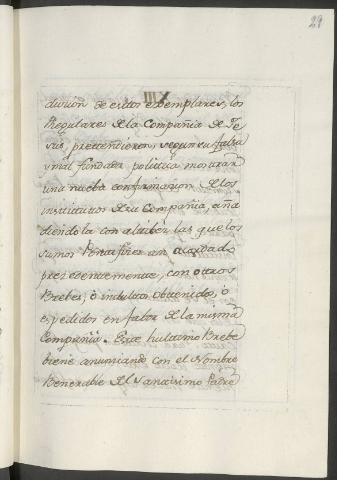 29
XIII
dusion de estos exemplares, los
Regulares de la Compañia de Je
sus, prettendieron, segun su falsa
y mal fundada politica mostrar
una nueba confirmacion de los
institutos de su Compañia, aña
diendola con alabez las que los
sumos Pontifizes an acordado
prezedentemente, con otros
Brebes, ô indultos obtenidos, ô
expedidos en fabor de la misma
Compañia. Este hultimo Brebe
biene anunciando con el Nombre
Benerable del Santisimo Padre